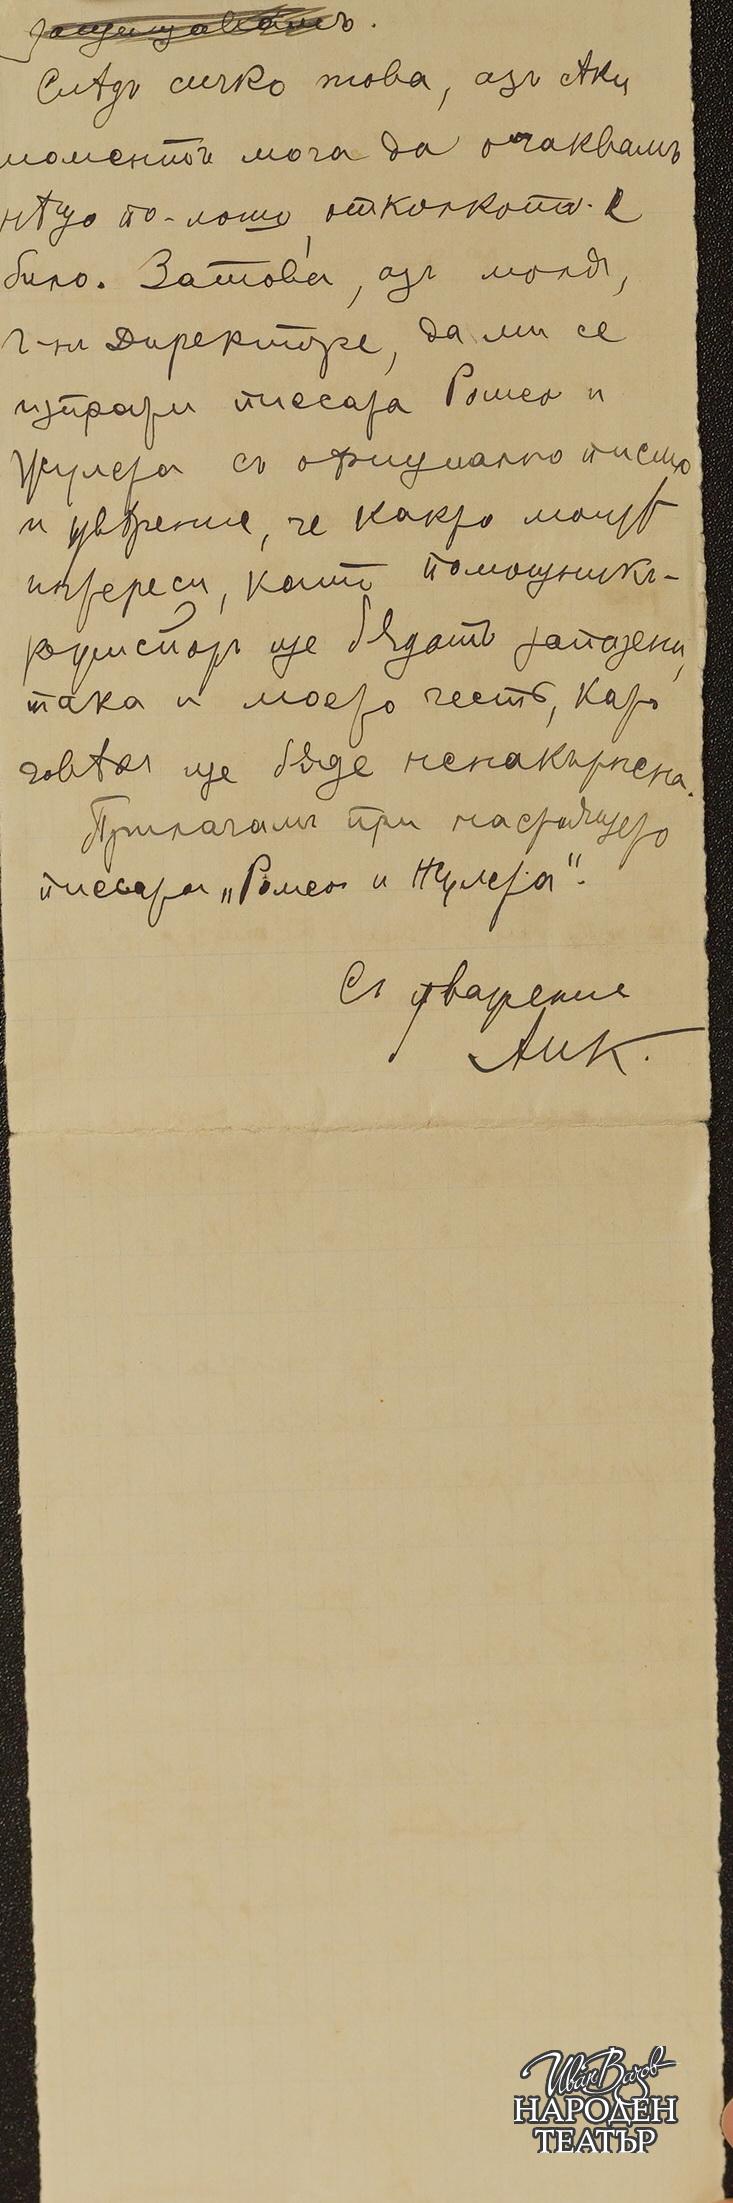 защищавамъ.
Слѣдъ сичко това, азъ сѣки
моментъ мога да очаквамъ
нѣщо по-лошо, отколкото е
било. Затова, азъ моля,
г-нъ Директоре, да ми се
изпрати писсата Ромео и
Жулета съ официално писмо
и увѣрение, че както моитѣ
интереси, като помощникъ-
режисьоръ ще бѫдатъ запазени,
така и моето честь, като
човѣкъ ще бѫде ненакърнена.
Прилагамъ при настоящето
писсата „Ромео и Жулета".
Съ уважение
АИК.
Иван Вазов
НАРОДЕН
ТЕАТЪР